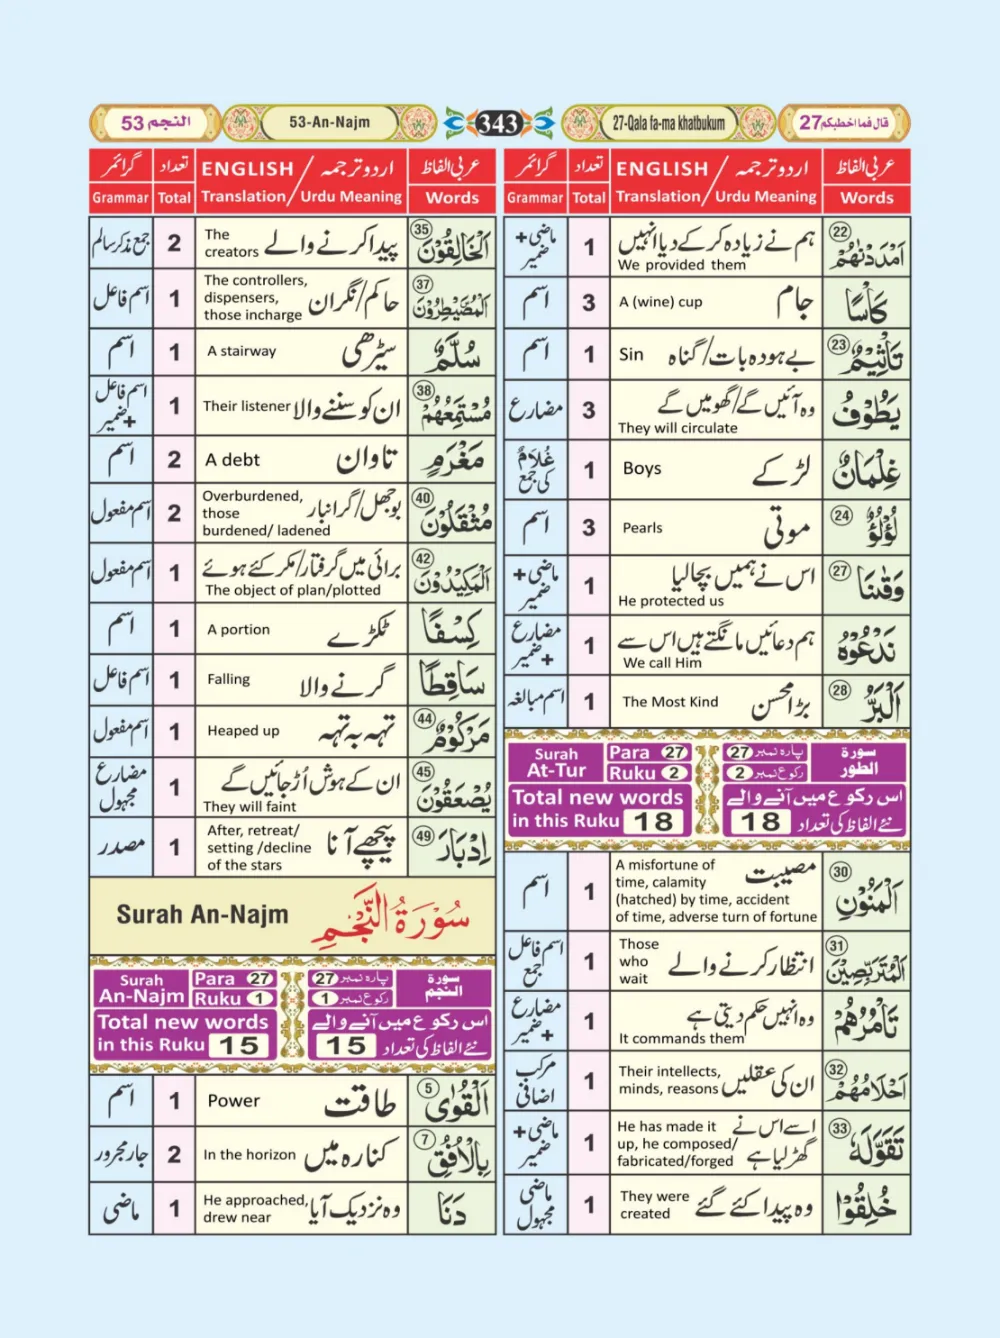 قال فما اخطبكم 27
27-Qala fa-ma khatbukum
343
53-An-Najm
النجم 53
عربی الفاظ
ENGLISH / اردو ترجمہ
تعداد
گرائمر
Words
Translation/ Urdu Meaning
Total
Grammar
22 اَمْدَدْنٰهُمْ
ہم نے زیادہ کر کے دیا انہیں
We provided them
1
ماضی + ضمیر
كَاْسًا
جام
A (wine) cup
3
اسم
23 تَاْثِيْمٌ
بے ہودہ بات/ گناہ
Sin
1
اسم
يَطُوْفُ
وہ آئیں گے/ گھومیں گے
They will circulate
3
مضارع
غِلْمَانٌ
لڑکے
Boys
1
غُلَامٌ کی جمع
24 لُؤْلُؤٌ
موتی
Pearls
3
اسم
27 وَقٰىنَا
اس نے ہمیں بچا لیا
He protected us
1
ماضی + ضمیر
نَدْعُوْهُ
ہم دعائیں مانگتے ہیں اس سے
We call Him
1
مضارع + ضمیر
28 اَلْبَرُّ
بڑا محسن
The Most Kind
1
اسم مبالغہ
Surah At-Tur
Para 27
Ruku 2
27 پارہ نمبر
2 رکوع نمبر
سورة الطور
Total new words
in this Ruku 18
اس رکوع میں آنے والے
نئے الفاظ کی تعداد 18
30 اَلْمَنُوْنِ
مصیبت
A misfortune of
time, calamity
(hatched) by time, accident
of time, adverse turn of fortune
1
اسم
31 اَلْمُتَرَبِّصِيْنَ
انتظار کرنے والے
Those
who
wait
1
اسم فاعل جمع
تَاْمُرُهُمْ
وہ انہیں حکم دیتی ہے
It commands them
1
مضارع + ضمیر
32 اَحْلَامُهُمْ
ان کی عقلیں
Their intellects,
minds, reasons
1
مرکب اضافی
33 تَقَوَّلَهٗ
اسے اس نے گھڑ لیا ہے
He has made it
up, he composed/
fabricated/forged
1
ماضی + ضمیر
خُلِقُوْا
وہ پیدا کئے گئے
They were
created
1
ماضی مجہول
عربی الفاظ
ENGLISH / اردو ترجمہ
تعداد
گرائمر
Words
Translation/ Urdu Meaning
Total
Grammar
35 اَلْخَالِقُوْنَ
پیدا کرنے والے
The
creators
2
جمع مذکر سالم
37 اَلْمُصَۜيْطِرُوْنَ
حاکم/ نگران
The controllers,
dispensers,
those incharge
1
اسم فاعل
سُلَّمٌ
سیڑھی
A stairway
1
اسم
38 مُسْتَمِعُهُمْ
ان کو سننے والا
Their listener
1
اسم فاعل + ضمیر
مَغْرَمٍ
تاوان
A debt
2
اسم
40 مُثْقَلُوْنَ
بوجھل/ گرانبار
Overburdened,
those
burdened/ ladened
2
اسم مفعول
42 اَلْمَكِيْدُوْنَ
برائی میں گرفتار/ مکر کئے ہوئے
The object of plan/plotted
1
اسم مفعول
كِسْفًا
ٹکڑے
A portion
1
اسم
سَاقِطًا
گرنے والا
Falling
1
اسم فاعل
44 مَرْكُوْمٌ
تہہ بہ تہہ
Heaped up
1
اسم مفعول
45 يُصْعَقُوْنَ
ان کے ہوش اُڑ جائیں گے
They will faint
1
مضارع مجہول
49 اِدْبَارَ
پیچھے آنا
After, retreat/
setting /decline
of the stars
1
مصدر
Surah An-Najm سُوْرَةُ النَّجْمِ
Surah An-Najm
Para 27
Ruku 1
27 پارہ نمبر
1 رکوع نمبر
سورة النجم
Total new words
in this Ruku 15
اس رکوع میں آنے والے
نئے الفاظ کی تعداد 15
5 اَلْقُوٰى
طاقت
Power
1
اسم
7 بِالْاُفُقِ
کنارہ میں
In the horizon
2
جار مجرور
دَنَا
وہ نزدیک آیا
He approached,
drew near
1
ماضی